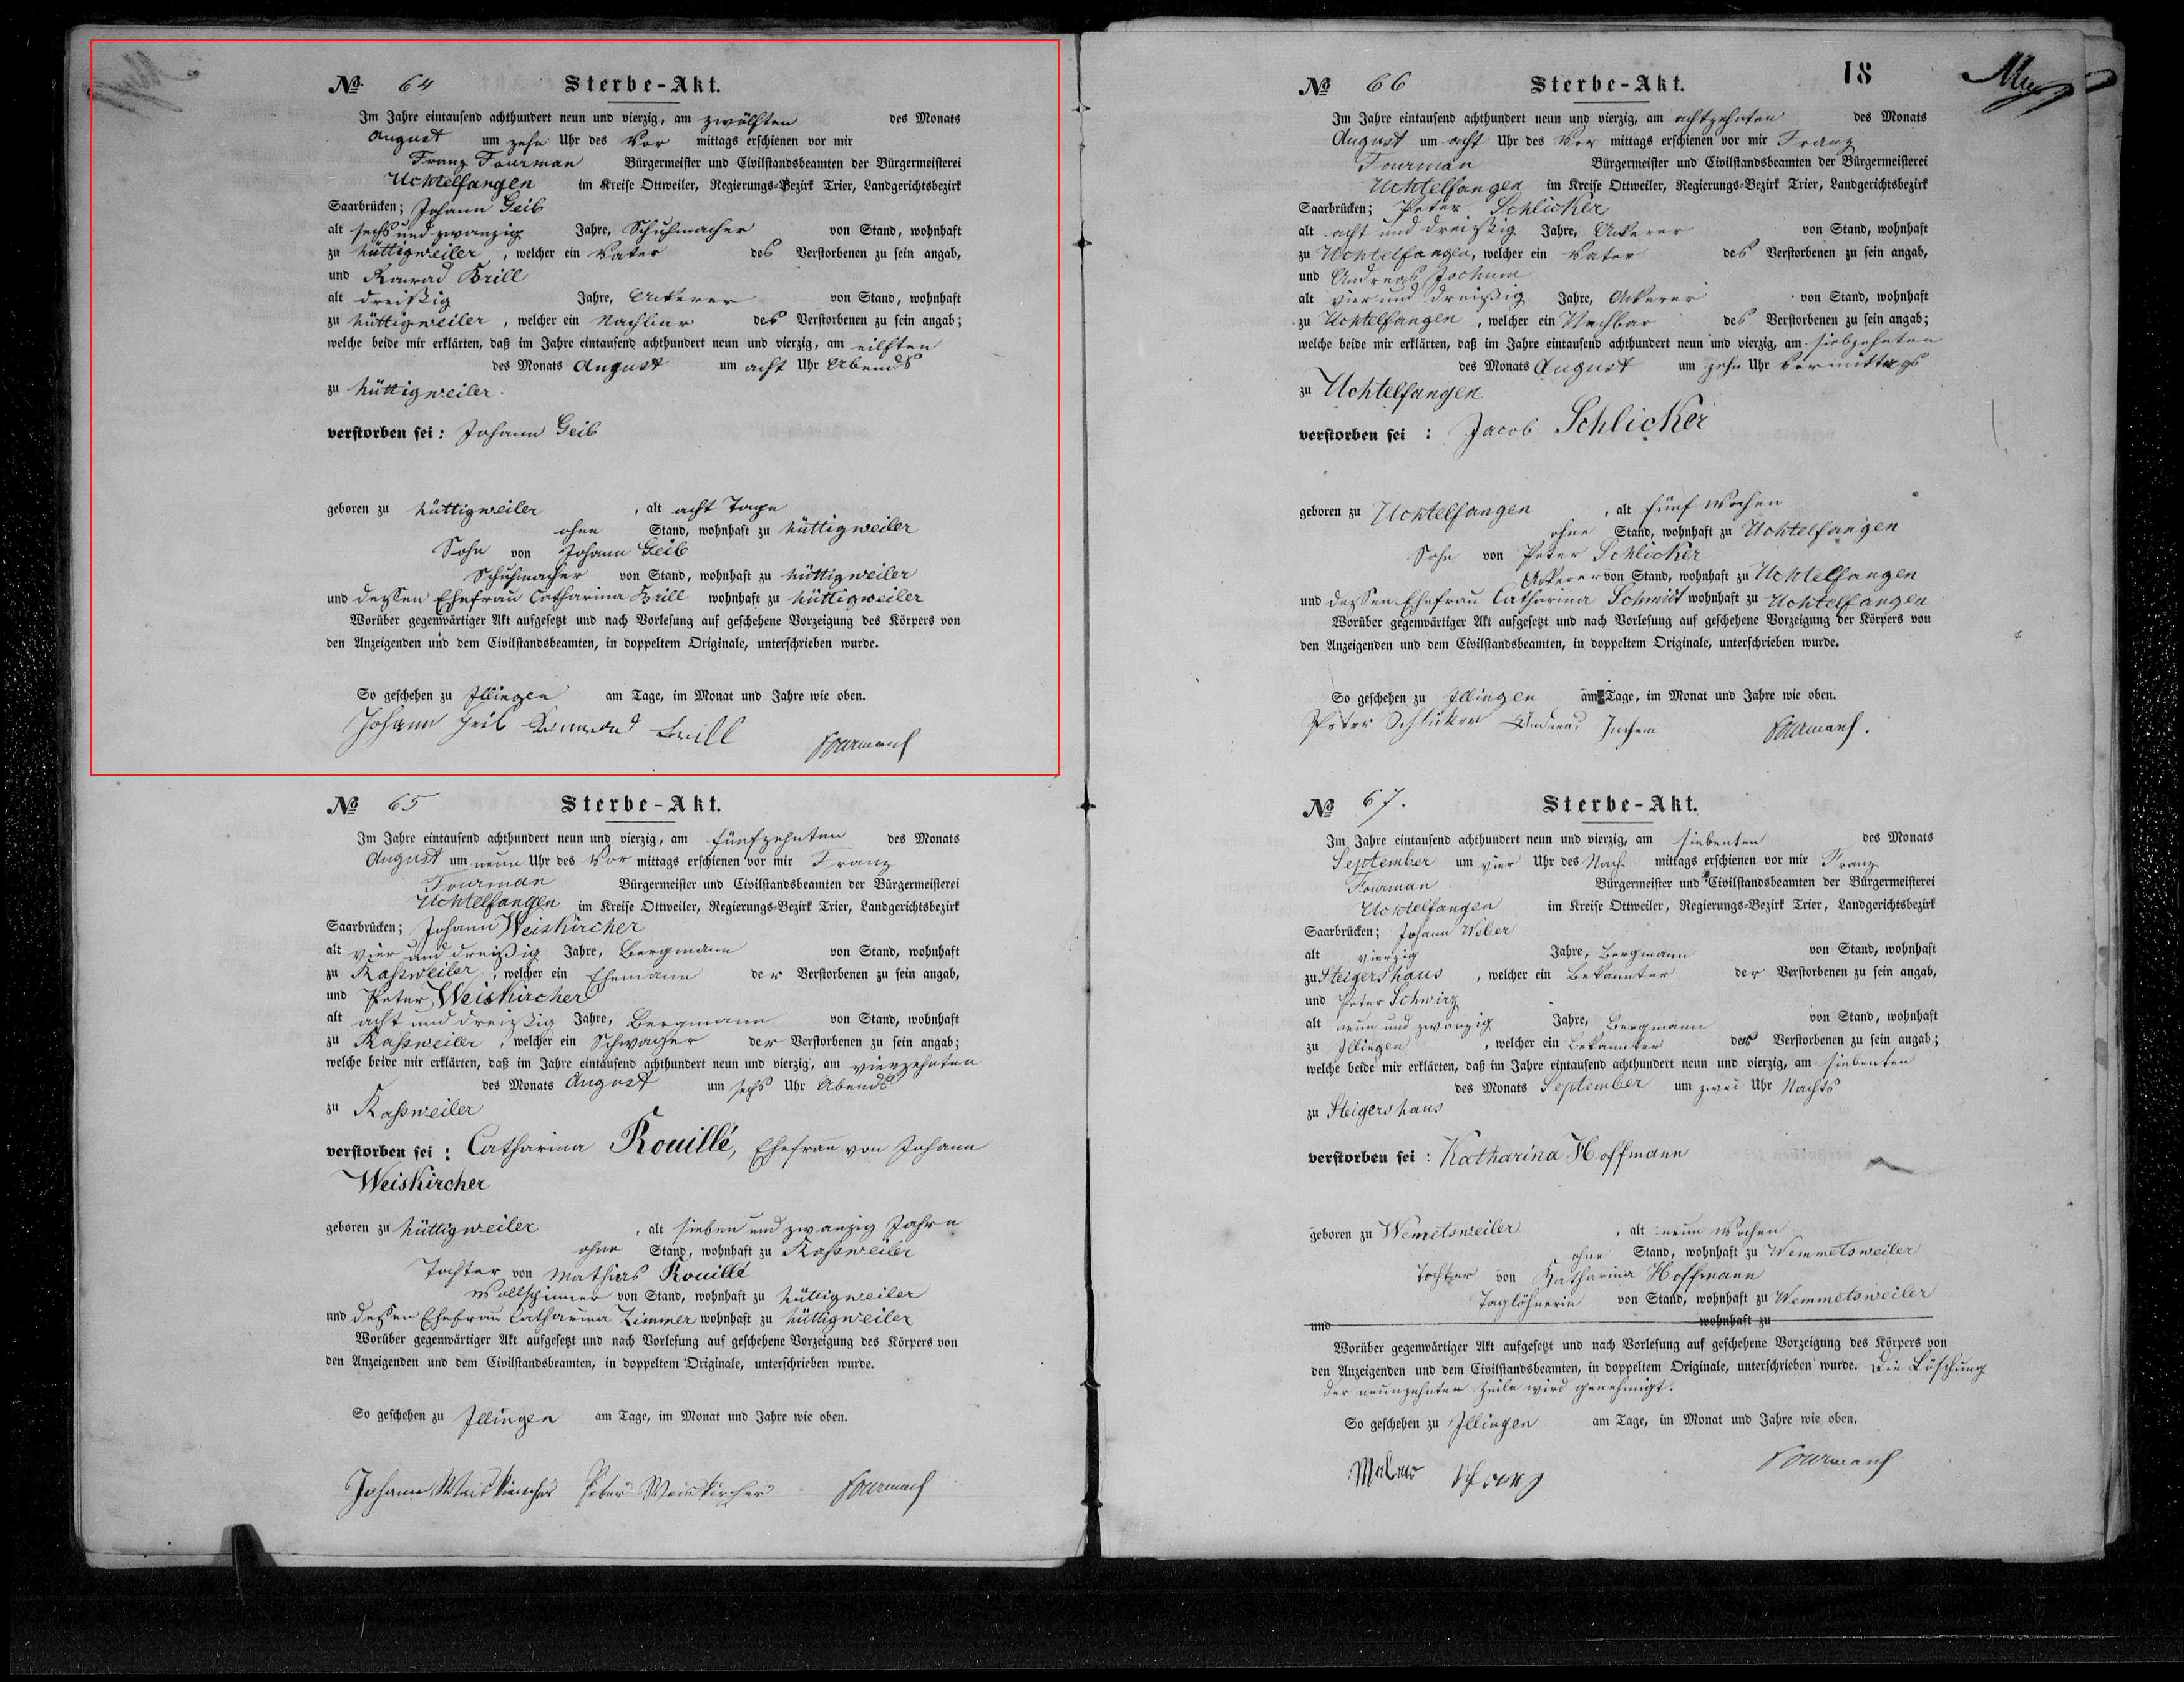 No 64 Sterbe-Akt.
Im Jahre eintausend achthundert neun und vierzig, am zwölften des Monats
August um zehn Uhr des Vor mittags erschienen vor mir
Franz Fourman Bürgermeister und Civilstandsbeamten der Bürgermeisterei
Uchtelfangen im Kreise Ottweiler, Regierungs-Bezirk Trier, Landgerichtsbezirk
Saarbrücken; Johann Geib
alt sechs und zwanzig Jahre, Schuhmacher von Stand, wohnhaft
zu Hüttigweiler, welcher ein Vater des Verstorbenen zu sein angab,
und Konrad Brill
alt dreißig Jahre, Ackerer von Stand, wohnhaft
zu Hüttigweiler, welcher ein Nachbar des Verstorbenen zu sein angab;
welche beide mir erklärten, daß im Jahre eintausend achthundert neun und vierzig, am eilften
des Monats August um acht Uhr Abends
zu Hüttigweiler.
verstorben sei: Johann Geib
geboren zu Hüttigweiler, alt acht Tage
ohne Stand, wohnhaft zu Hüttigweiler
Sohn von Johann Geib
Schuhmacher von Stand, wohnhaft zu Hüttigweiler
und dessen Ehefrau Catharina Brill wohnhaft zu Hüttigweiler
Worüber gegenwärtiger Akt aufgesetzt und nach Vorlesung auf geschehene Vorzeigung des Körpers von
den Anzeigenden und dem Civilstandsbeamten, in doppeltem Originale, unterschrieben wurde.
So geschehen zu Illingen am Tage, im Monat und Jahre wie oben.
Johann Geib Konrad Brill Fourman
No 65 Sterbe-Akt.
Im Jahre eintausend achthundert neun und vierzig, am fünfzehnten des Monats
August um neun Uhr des Vor mittags erschienen vor mir Franz
Fourman Bürgermeister und Civilstandsbeamten der Bürgermeisterei
Uchtelfangen im Kreise Ottweiler, Regierungs-Bezirk Trier, Landgerichtsbezirk
Saarbrücken; Johann Weiskircher
alt vier und dreißig Jahre, Bergmann von Stand, wohnhaft
zu Raßweiler, welcher ein Ehemann der Verstorbenen zu sein angab,
und Peter Weiskircher
alt acht und dreißig Jahre, Bergmann von Stand, wohnhaft
zu Raßweiler, welcher ein Schwager der Verstorbenen zu sein angab;
welche beide mir erklärten, daß im Jahre eintausend achthundert neun und vierzig, am vierzehnten
des Monats August um sechs Uhr Abends
zu Raßweiler
verstorben sei: Catharina Rouillé, Ehefrau von Johann
Weiskircher
geboren zu Hüttigweiler, alt sieben und zwanzig Jahre
ohne Stand, wohnhaft zu Raßweiler
Tochter von Mathias Rouillé
Wollspinner von Stand, wohnhaft zu Hüttigweiler
und dessen Ehefrau Catharina Zimmer wohnhaft zu Hüttigweiler
Worüber gegenwärtiger Akt aufgesetzt und nach Vorlesung auf geschehene Vorzeigung des Körpers von
den Anzeigenden und dem Civilstandsbeamten, in doppeltem Originale, unterschrieben wurde.
So geschehen zu Illingen am Tage, im Monat und Jahre wie oben.
Johann Weiskircher Peter Weiskircher Fourman
18
No 66 Sterbe-Akt.
Im Jahre eintausend achthundert neun und vierzig, am achtzehnten des Monats
August um acht Uhr des Vor mittags erschienen vor mir Franz
Fourman Bürgermeister und Civilstandsbeamten der Bürgermeisterei
Uchtelfangen im Kreise Ottweiler, Regierungs-Bezirk Trier, Landgerichtsbezirk
Saarbrücken; Peter Schlicker
alt acht und dreißig Jahre, Ackerer von Stand, wohnhaft
zu Uchtelfangen, welcher ein Vater des Verstorbenen zu sein angab,
und Andreas Jochum
alt vier und dreißig Jahre, Ackerer von Stand, wohnhaft
zu Uchtelfangen, welcher ein Nachbar des Verstorbenen zu sein angab;
welche beide mir erklärten, daß im Jahre eintausend achthundert neun und vierzig, am siebzehnten
des Monats August um zehn Uhr Vormittags
zu Uchtelfangen
verstorben sei: Jacob Schlicker
geboren zu Uchtelfangen, alt fünf Wochen
ohne Stand, wohnhaft zu Uchtelfangen
Sohn von Peter Schlicker
Ackerer von Stand, wohnhaft zu Uchtelfangen
und dessen Ehefrau Catharina Schmidt wohnhaft zu Uchtelfangen
Worüber gegenwärtiger Akt aufgesetzt und nach Vorlesung auf geschehene Vorzeigung der Körpers von
den Anzeigenden und dem Civilstandsbeamten, in doppeltem Originale, unterschrieben wurde.
So geschehen zu Illingen am Tage, im Monat und Jahre wie oben.
Peter Schlicker Andreas Jochem Fourman.
No 67. Sterbe-Akt.
Im Jahre eintausend achthundert neun und vierzig, am siebenten des Monats
September um vier Uhr des Nach mittags erschienen vor mir Franz
Fourman Bürgermeister und Civilstandsbeamten der Bürgermeisterei
Uchtelfangen im Kreise Ottweiler, Regierungs-Bezirk Trier, Landgerichtsbezirk
Saarbrücken; Johann Weber
alt vierzig Jahre, Bergmann von Stand, wohnhaft
zu Steigershaus, welcher ein Bekannter der Verstorbenen zu sein angab,
und Peter Schwirz
alt neun und zwanzig Jahre, Bergmann von Stand, wohnhaft
zu Illingen, welcher ein Bekannter der Verstorbenen zu sein angab;
welche beide mir erklärten, daß im Jahre eintausend achthundert neun und vierzig, am siebenten
des Monats September um zwei Uhr Nachts
zu Steigershaus
verstorben sei: Katharina Hoffmann
geboren zu Wemetsweiler, alt neun Wochen
ohne Stand, wohnhaft zu Wemmetsweiler
Tochter von Katharina Hoffmann
Taglöhnerin von Stand, wohnhaft zu Wemmetsweiler
und wohnhaft zu
Worüber gegenwärtiger Akt aufgesetzt und nach Vorlesung auf geschehene Vorzeigung des Körpers von
den Anzeigenden und dem Civilstandsbeamten, in doppeltem Originale, unterschrieben wurde. Die Löschung
der neunzehnten Zeile wird genehmigt.
So geschehen zu Illingen am Tage, im Monat und Jahre wie oben.
Fourman